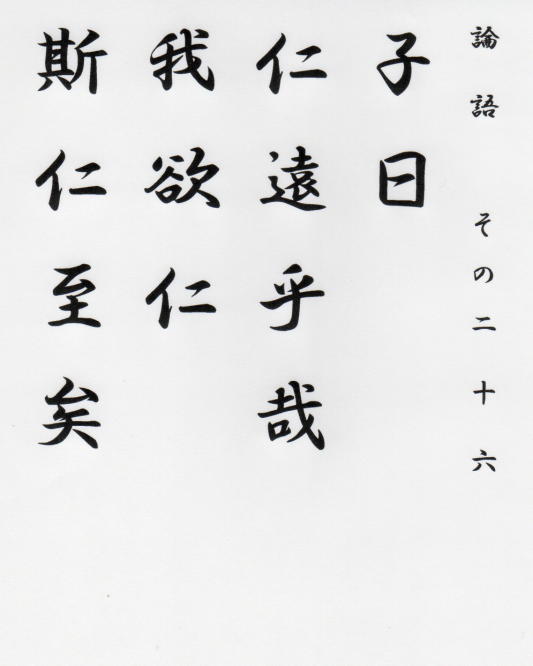 論語 その二十六
子曰
仁遠乎哉
我欲仁
斯仁至矣